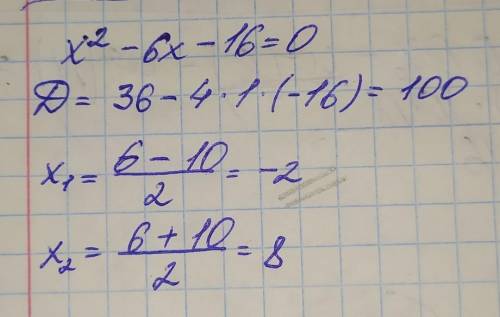 x² - 6x - 16 = 0
Д = 36 - 4 · 1 · (-16) = 100
x₁ = (6 - 10)/2 = -2
x₂ = (6 + 10)/2 = 8